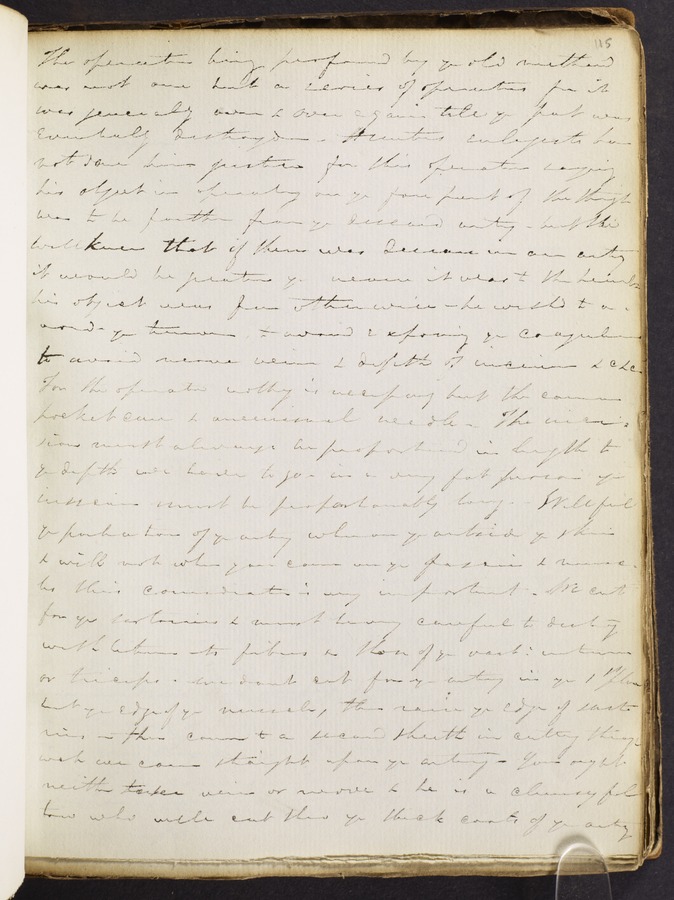 115
The operation being performed by ye old method
was not one but a series of operations for it
was generally over & over again till ye part was
eventually destroyed - Hunters eulogists have
not done him justice for this operation saying
his object in operating on ye fore part of the thigh
was to be further from ye diseased artery - but he
well knew that if there was disease in an artery
it would be greater ye nearer it was to the heart
his object was far otherwise - he wished to a-
void ye tumor, to avoid exposing ye coagulum
to avoid nerve vein & depth of incision &c &c
For the operation nothing is necessary but the common
pocket case & aneurismal needle - The inci-
sion must always be proportioned in length to
ye depth we have to go in a very fat person ye
incision must be proportionably long - We feel
ye pulsation of ye artery when on ye outside ye skin
& will not when you come on ye fascia & musc-
les this consideration is very important. We cut
for ye sartorius & must be very careful to distinguish
whether its fibres or those of ye vast: internus
or triceps - we dont cut for ye artery in ye 1st place
but ye edge of ye muscle, then raise ye edge of sarto
rius - then come to a second sheath in cutting through
wch we come straight upon ye artery - You ought
neither to see vein or nerve & he is a clumsy fel
low who will cut thro ye thick coats of ye artery